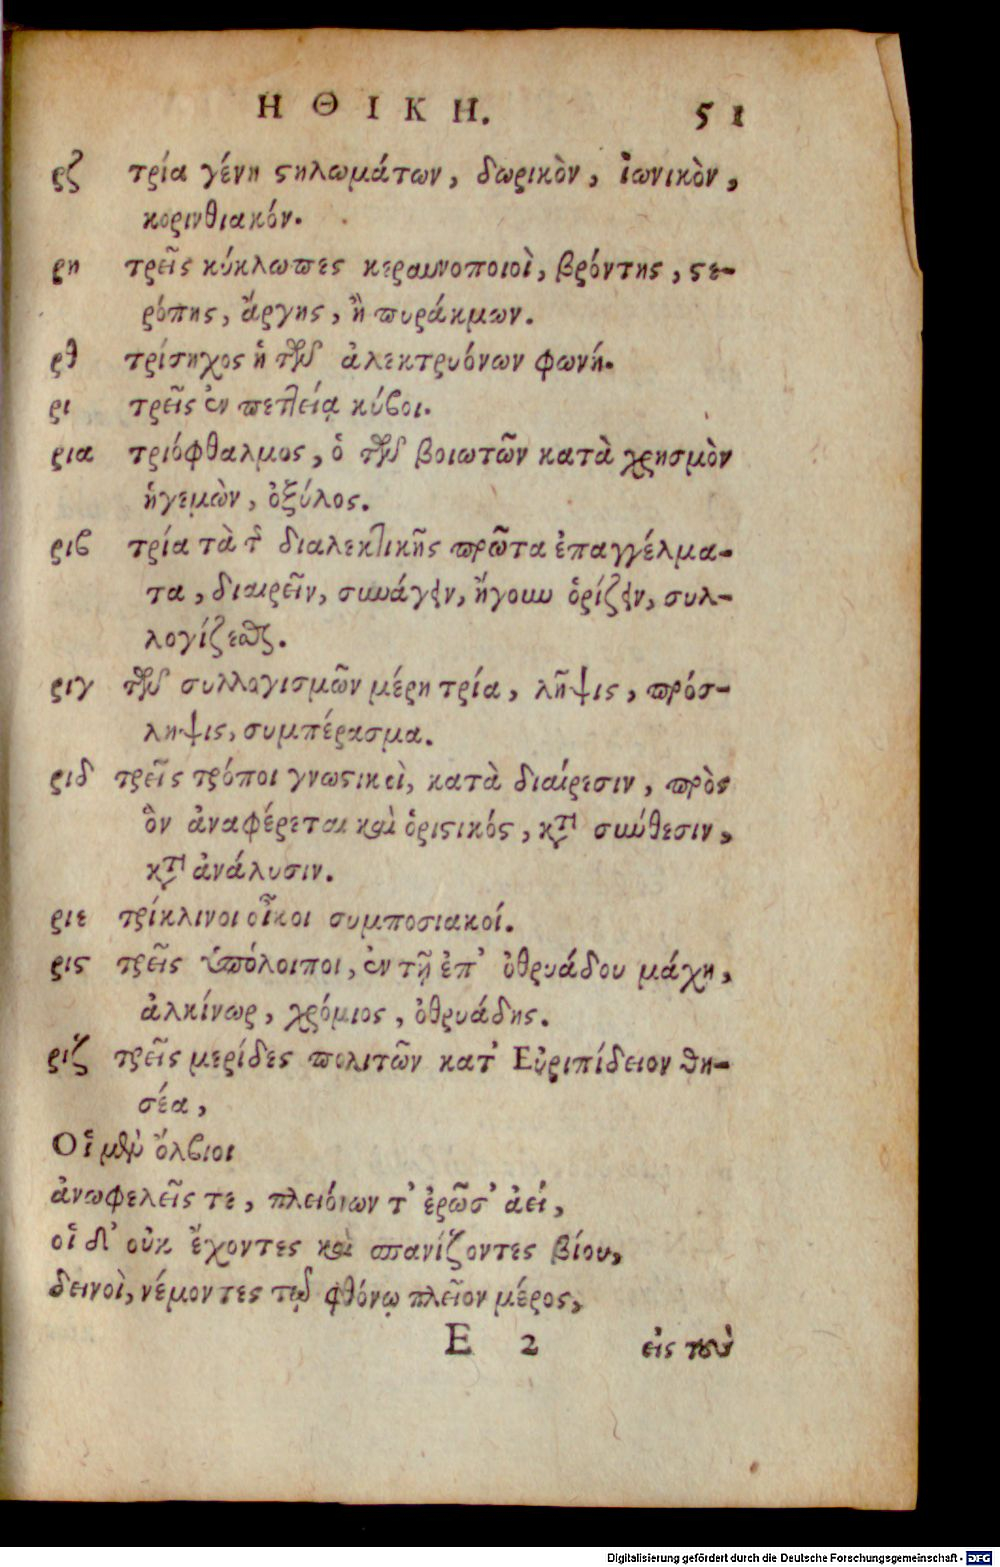 ΗΘΙΚΗ. 51
ρζ τρία γένη ϛηλωμάτων, δωρικὸν, ἰωνικὸν,
κορινθιακόν.
ρη τρεῖς κύκλωπες κεραυνοποιοὶ, βρόντης, ϛε-
ρόπης, ἄργης, ἢ πυράκμων.
ρθ τρίσηχος ἡ τῶν ἀλεκτρυόνων φωνή.
ρι τρεῖς ἐν πεττείᾳ κύβοι.
ρια τριόφθαλμος, ὁ τῶν βοιωτῶν κατὰ χρησμὸν
ἡγεμὼν, ὀξύλος.
ριβ τρία τὰ τῆς διαλεκτικῆς πρῶτα ἐπαγγέλμα-
τα, διαιρεῖν, συνάγειν, ἤγουν ὁρίζειν, συλ-
λογίζεσθαι.
ριγ τῶν συλλογισμῶν μέρη τρία, λῆψις, πρόσ-
ληψις, συμπέρασμα.
ριδ τρεῖς τρόποι γνωϛικοὶ, κατὰ διαίρεσιν, πρὸς
ὃν ἀναφέρεται καὶ ὁριϛικός, κατὰ σύνθεσιν,
κατὰ ἀνάλυσιν.
ριε τρίκλινοι οἶκοι συμποσιακοί.
ριϛ τρεῖς ὑπόλοιποι, ἐν τῇ ἐπ' ὀθρυάδου μάχῃ,
ἀλκίνωρ, χρόμιος, ὀθρυάδης.
ριζ τρεῖς μερίδες πολιτῶν κατ' Εὐριπίδειον θη-
σέα,
Οἳ μὲν ὄλβιοι
ἀνωφελεῖς τε, πλειόνων τ' ἐρῶσ' ἀεί,
οἳ δ' οὐκ ἔχοντες καὶ σπανίζοντες βίου,
δεινοὶ, νέμοντες τῷ φθόνῳ πλεῖον μέρος,
E 2 εἰς τοὺ
Digitalisierung gefördert durch die Deutsche Forschungsgemeinschaft - DFG